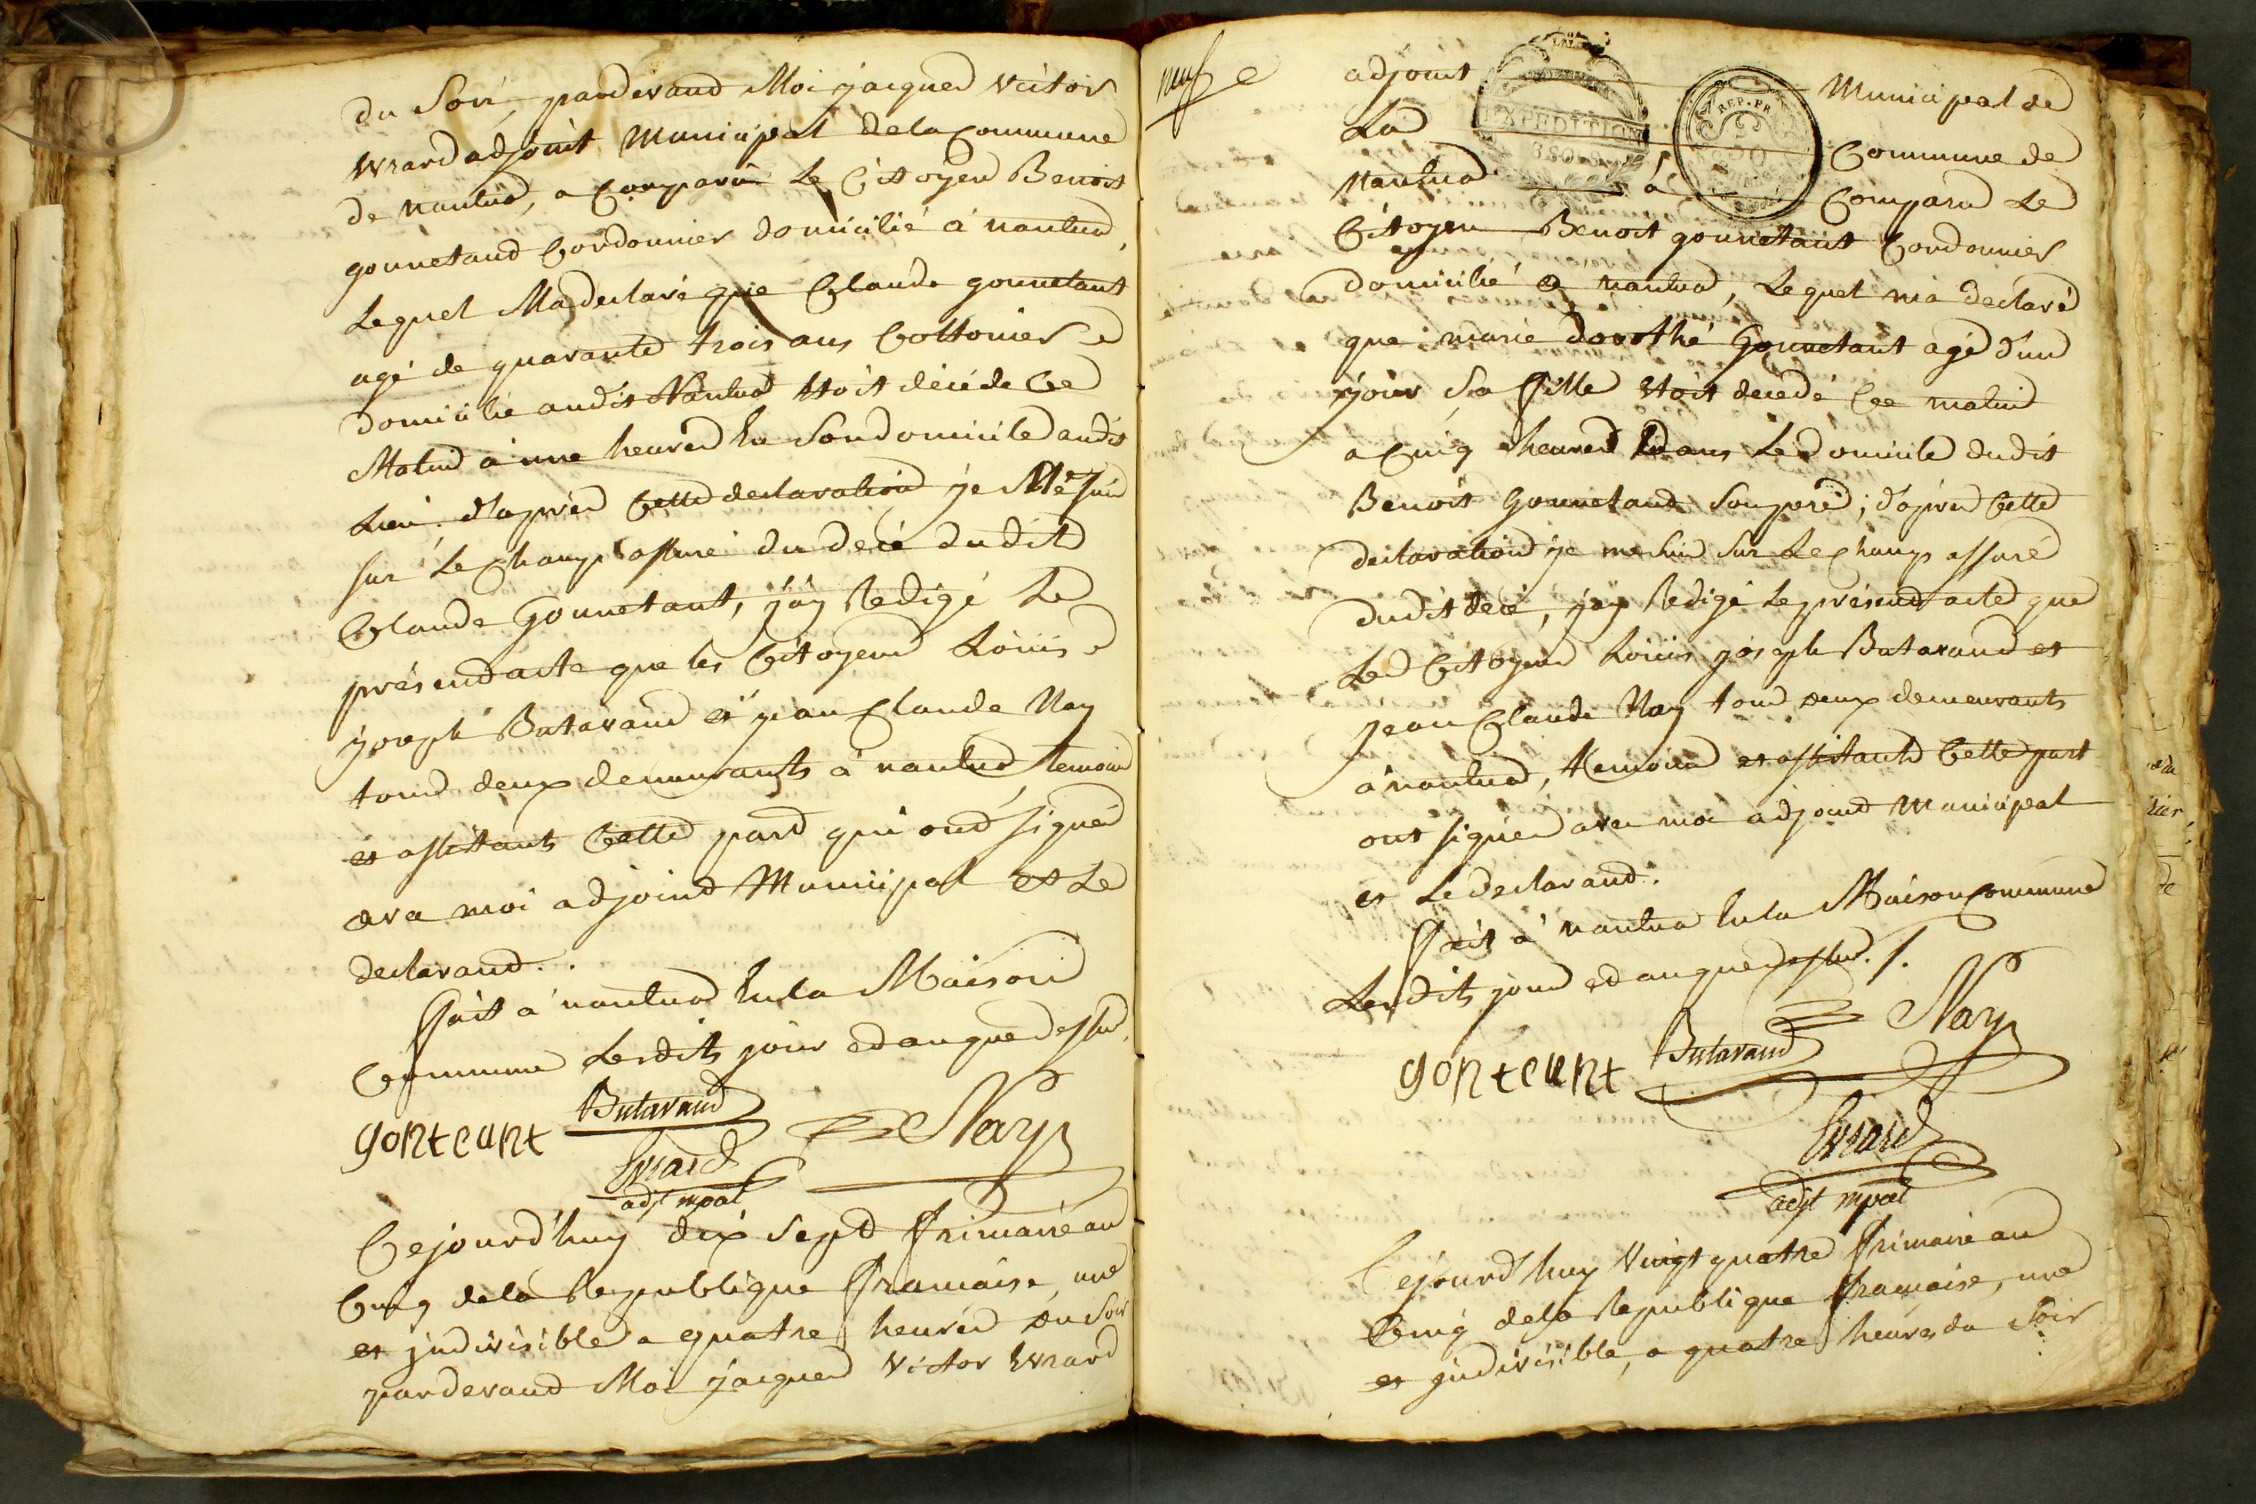 du Soir, pardevand Moi jacques Victor
Evrard adjoint Municipal de la Commune
de nantua, a Comparu Le Citoyen Benoit
gonnetand Cordonnier domicilié a nantua,
Lequel Ma declaré que Claude gonnetant
agé de quarante trois ans Cottonier
domicilié audit Nantua Etoit décédé Ce
Matin a une heure En Son domicile audit
Lieu. d'apres Cette declaration je Me suis
sur Le Champ assuré du decé dudit
Claude Gonnetant, j'ay Redigé Le
présend acte que les Citoyens Louis
joseph Butavand et jean Claude Nay
tous deux demeurants a nantua, temoins
et assistants Cette pard qui ond signé
avec moi adjoind Municipal et Le
declarand.
Fait a nantua En la Maison
Commune Lesdits jour ed an que dessus.
gonteant Butavand Nay
Evrard
adjt mpal
Cejourd'huy dix Sept frimaire an
Cinq de la Republique francaise, une
et jndivisible a quatre heures du Soir
pardevand Moi jacques Victor Evrard
neuf
adjoint Municipal de
La Commune de
Nantua a Comparu Le
EXPEDITION
REP. FR.
50
Citoyen Benoit gonnetant Cordonnier
domicilié a nantua, Lequel m'a declaré
que marie dorothé Gonnetant agé d'un
jour Sa fille Etoit decedé Ce matin
a Cinq heures dans Le domicile dudit
Benoit Gonnetand Son pere; d'apres Cette
declaration je me suis Sur Le Champ assuré
dudit decé, j'ay Redigé Le présend acte que
Les Citoyens Louis joseph Butavand et
jean Claude Nay tous deux demeurants
a nantua, temoins et assistants Cette part
ont signé avec moi adjoind Municipal
et Le declarand.
Fait a nantua En la Maison Commune
Lesdits jour ed an que dessus.
gonteant Butavand Nay
Evrard
adjt mpal
Cejourd'huy Vingt quatre frimaire an
Cinq de la Republique francaise, une
et jndivisible, a quatre heures du Soir